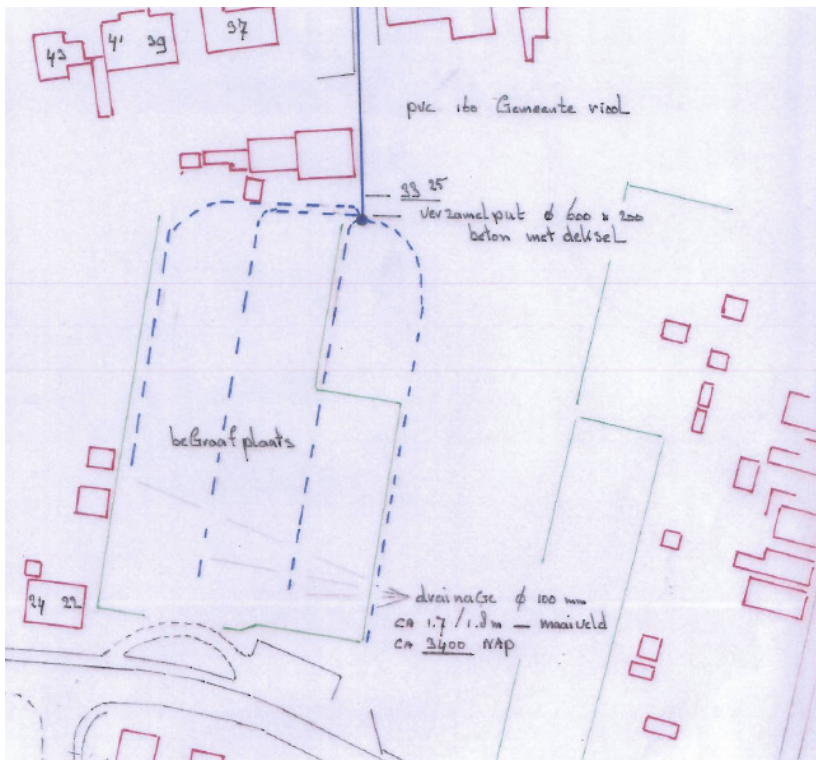 37
43
41
39
pvc 160 Gemeente riool
33 25
verzamelput ø 600 x 200
beton met deksel
beGraafplaats
24 22
drainaGe ø 100 mm
CA 1.7 / 1.8 m — maaiveld
CA 3400 NAP